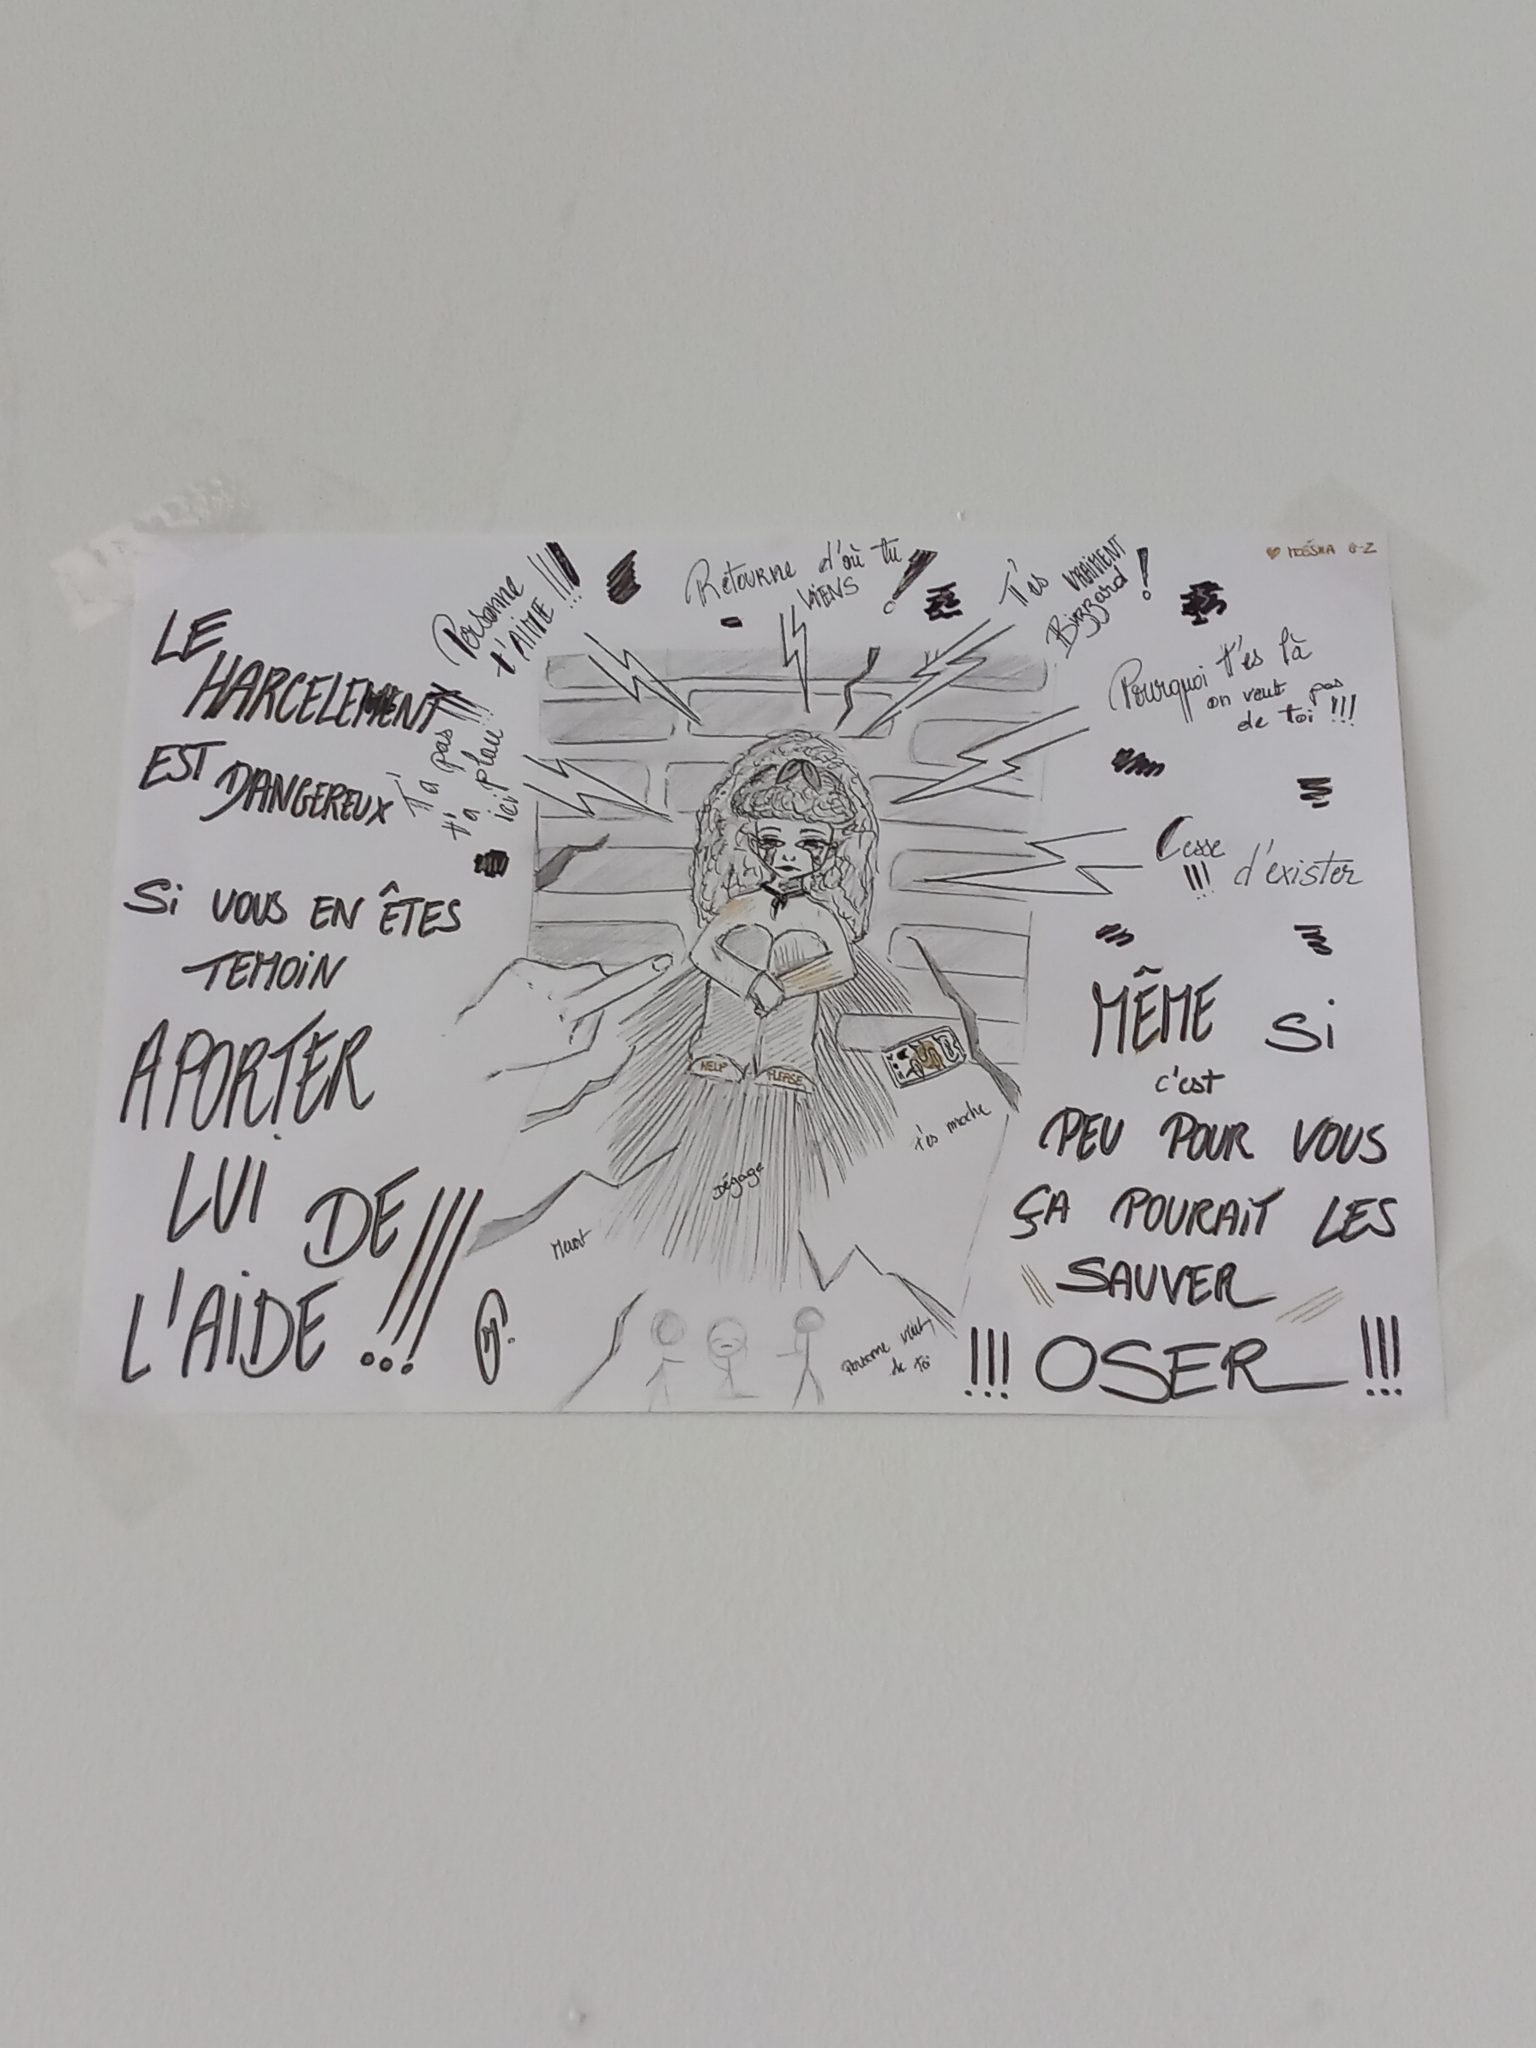 LE
HARCELEMENT
EST DANGEREUX
Si VOUS EN ÊTES
TEMOIN
APORTER
LUI DE
L'AIDE !!!
Personne
t'AIME !!!
T'a pas !!!
t'a plau
ici
Retourne d'où tu
viens !
T'es VRAIMENT
Bizzard !
Pourquoi t'es là
on veut pas
de toi !!!
Cesse d'exister
!!!
HELP PLEASE
t'es moche
Dégage
Meurt
Personne veut
de toi
MÊME Si
c'est
PEU POUR VOUS
ÇA POURAiT LES
SAUVER
!!! OSER !!!